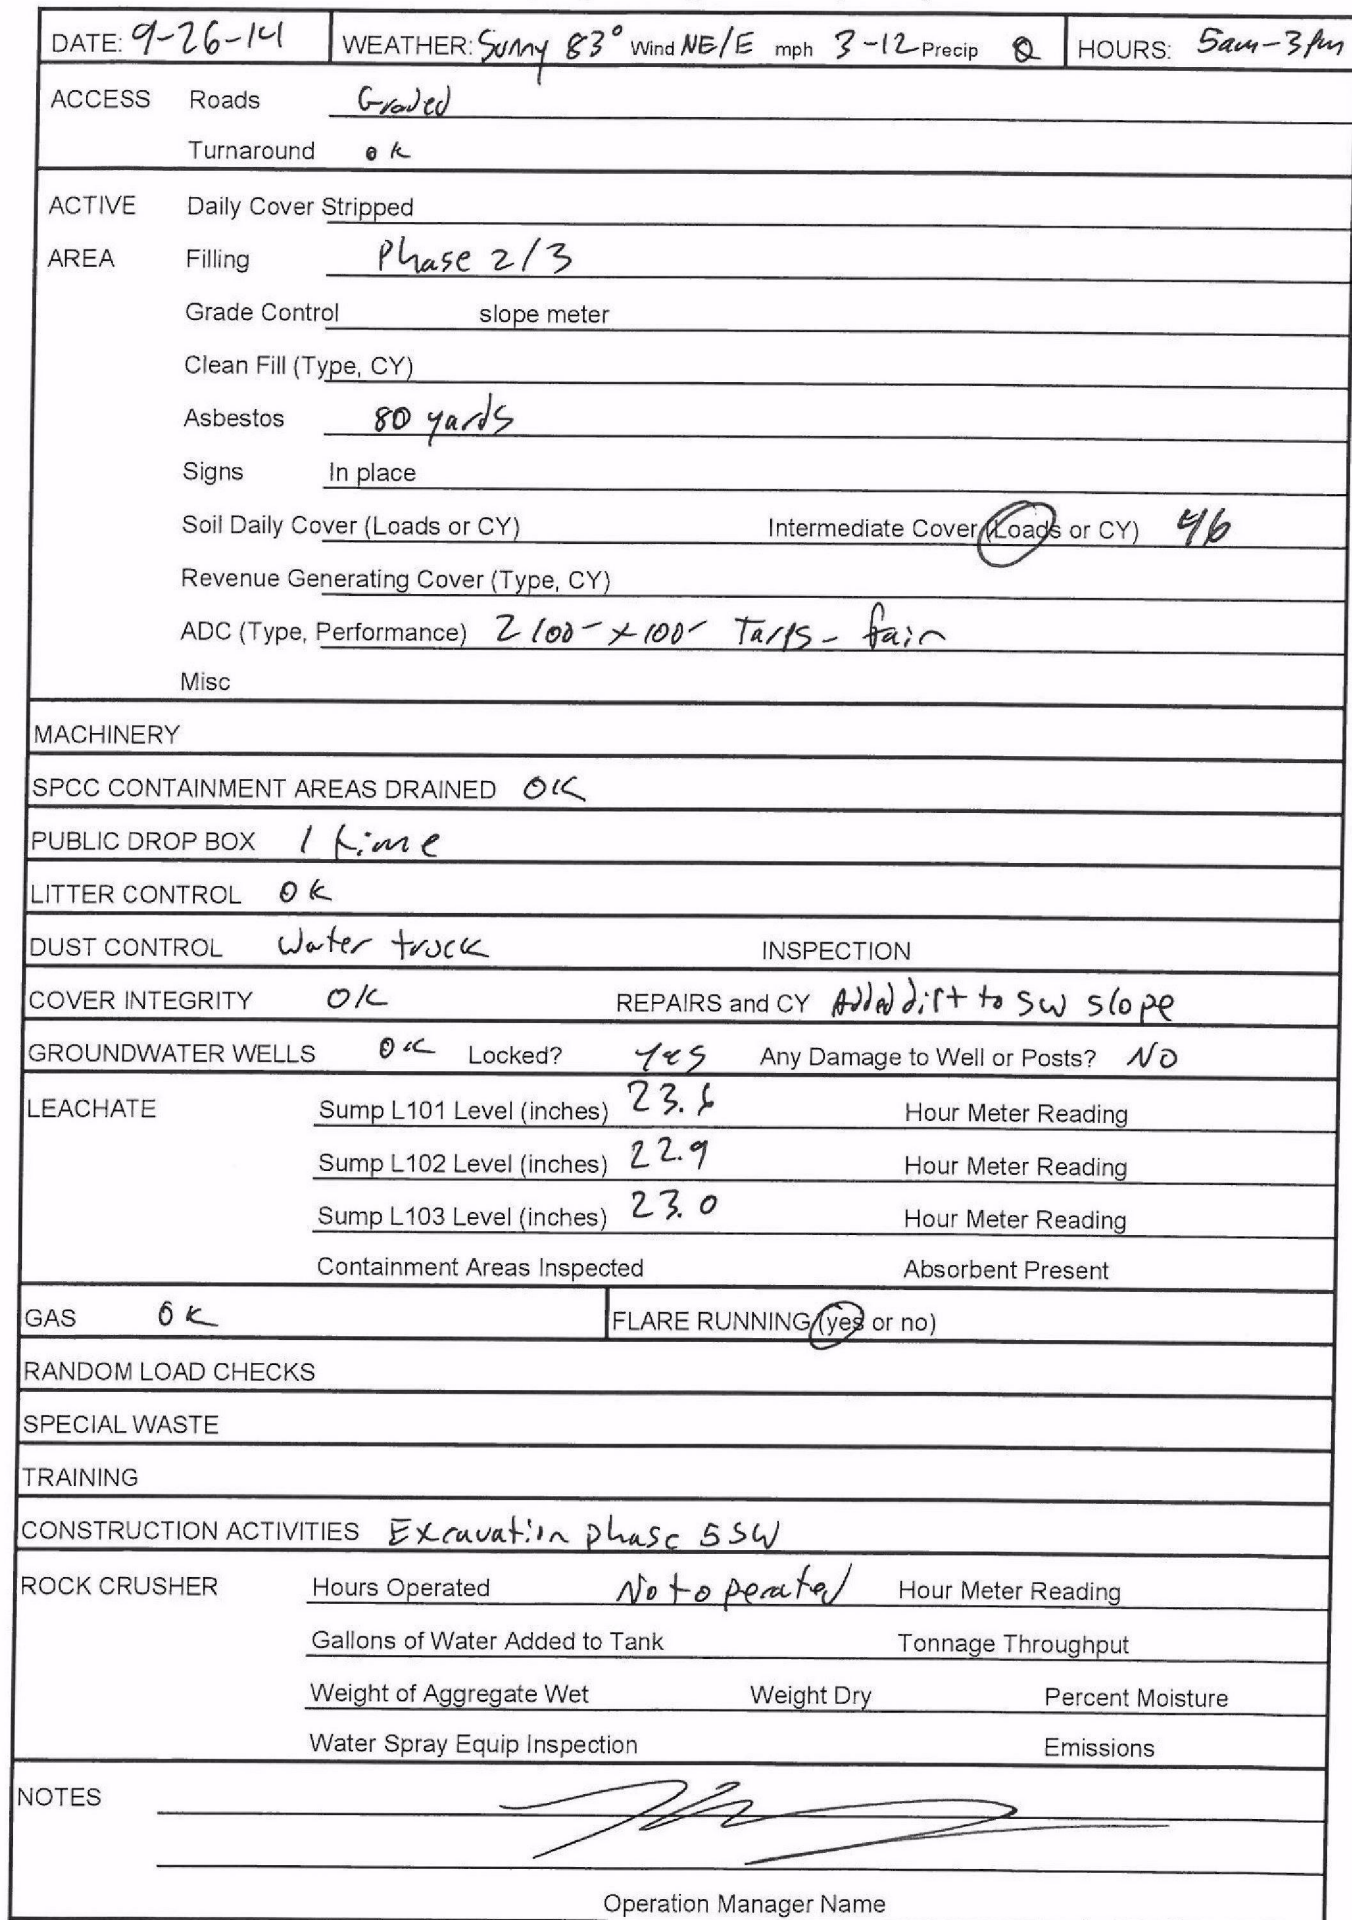 DATE: 9-26-14 WEATHER: Sunny 83° Wind NE/E mph 3-12 Precip 0 HOURS: 5am-3pm
ACCESS Roads Graded
Turnaround ok
ACTIVE Daily Cover Stripped
AREA Filling Phase 2/3
Grade Control slope meter
Clean Fill (Type, CY)
Asbestos 80 yards
Signs In place
Soil Daily Cover (Loads or CY) Intermediate Cover (Loads or CY) 46
Revenue Generating Cover (Type, CY)
ADC (Type, Performance) 2 100' x 100' Tarps - fair
Misc
MACHINERY
SPCC CONTAINMENT AREAS DRAINED OK
PUBLIC DROP BOX 1 time
LITTER CONTROL OK
DUST CONTROL Water truck INSPECTION
COVER INTEGRITY OK REPAIRS and CY Added dirt to SW slope
GROUNDWATER WELLS OK Locked? Yes Any Damage to Well or Posts? NO
LEACHATE Sump L101 Level (inches) Hour Meter Reading
Sump L102 Level (inches) 22.9 Hour Meter Reading
Sump L103 Level (inches) 23.0 Hour Meter Reading
Containment Areas Inspected Absorbent Present
GAS OK FLARE RUNNING (yes or no)
RANDOM LOAD CHECKS
SPECIAL WASTE
TRAINING
CONSTRUCTION ACTIVITIES Excavation phase 5 SW
ROCK CRUSHER Hours Operated Not operated Hour Meter Reading
Gallons of Water Added to Tank Tonnage Throughput
Weight of Aggregate Wet Weight Dry Percent Moisture
Water Spray Equip Inspection Emissions
NOTES
Operation Manager Name